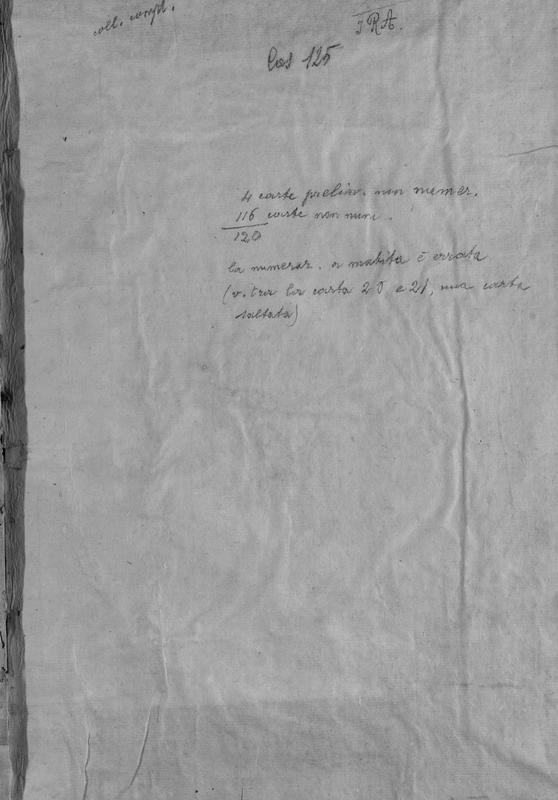 coll. compl.
IRA.
Cas 125
4 carte prelim. non numer.
116 carte non num.
120
la numeraz. a matita è errata
(v. tra la carta 20 e 21, una carta
saltata)